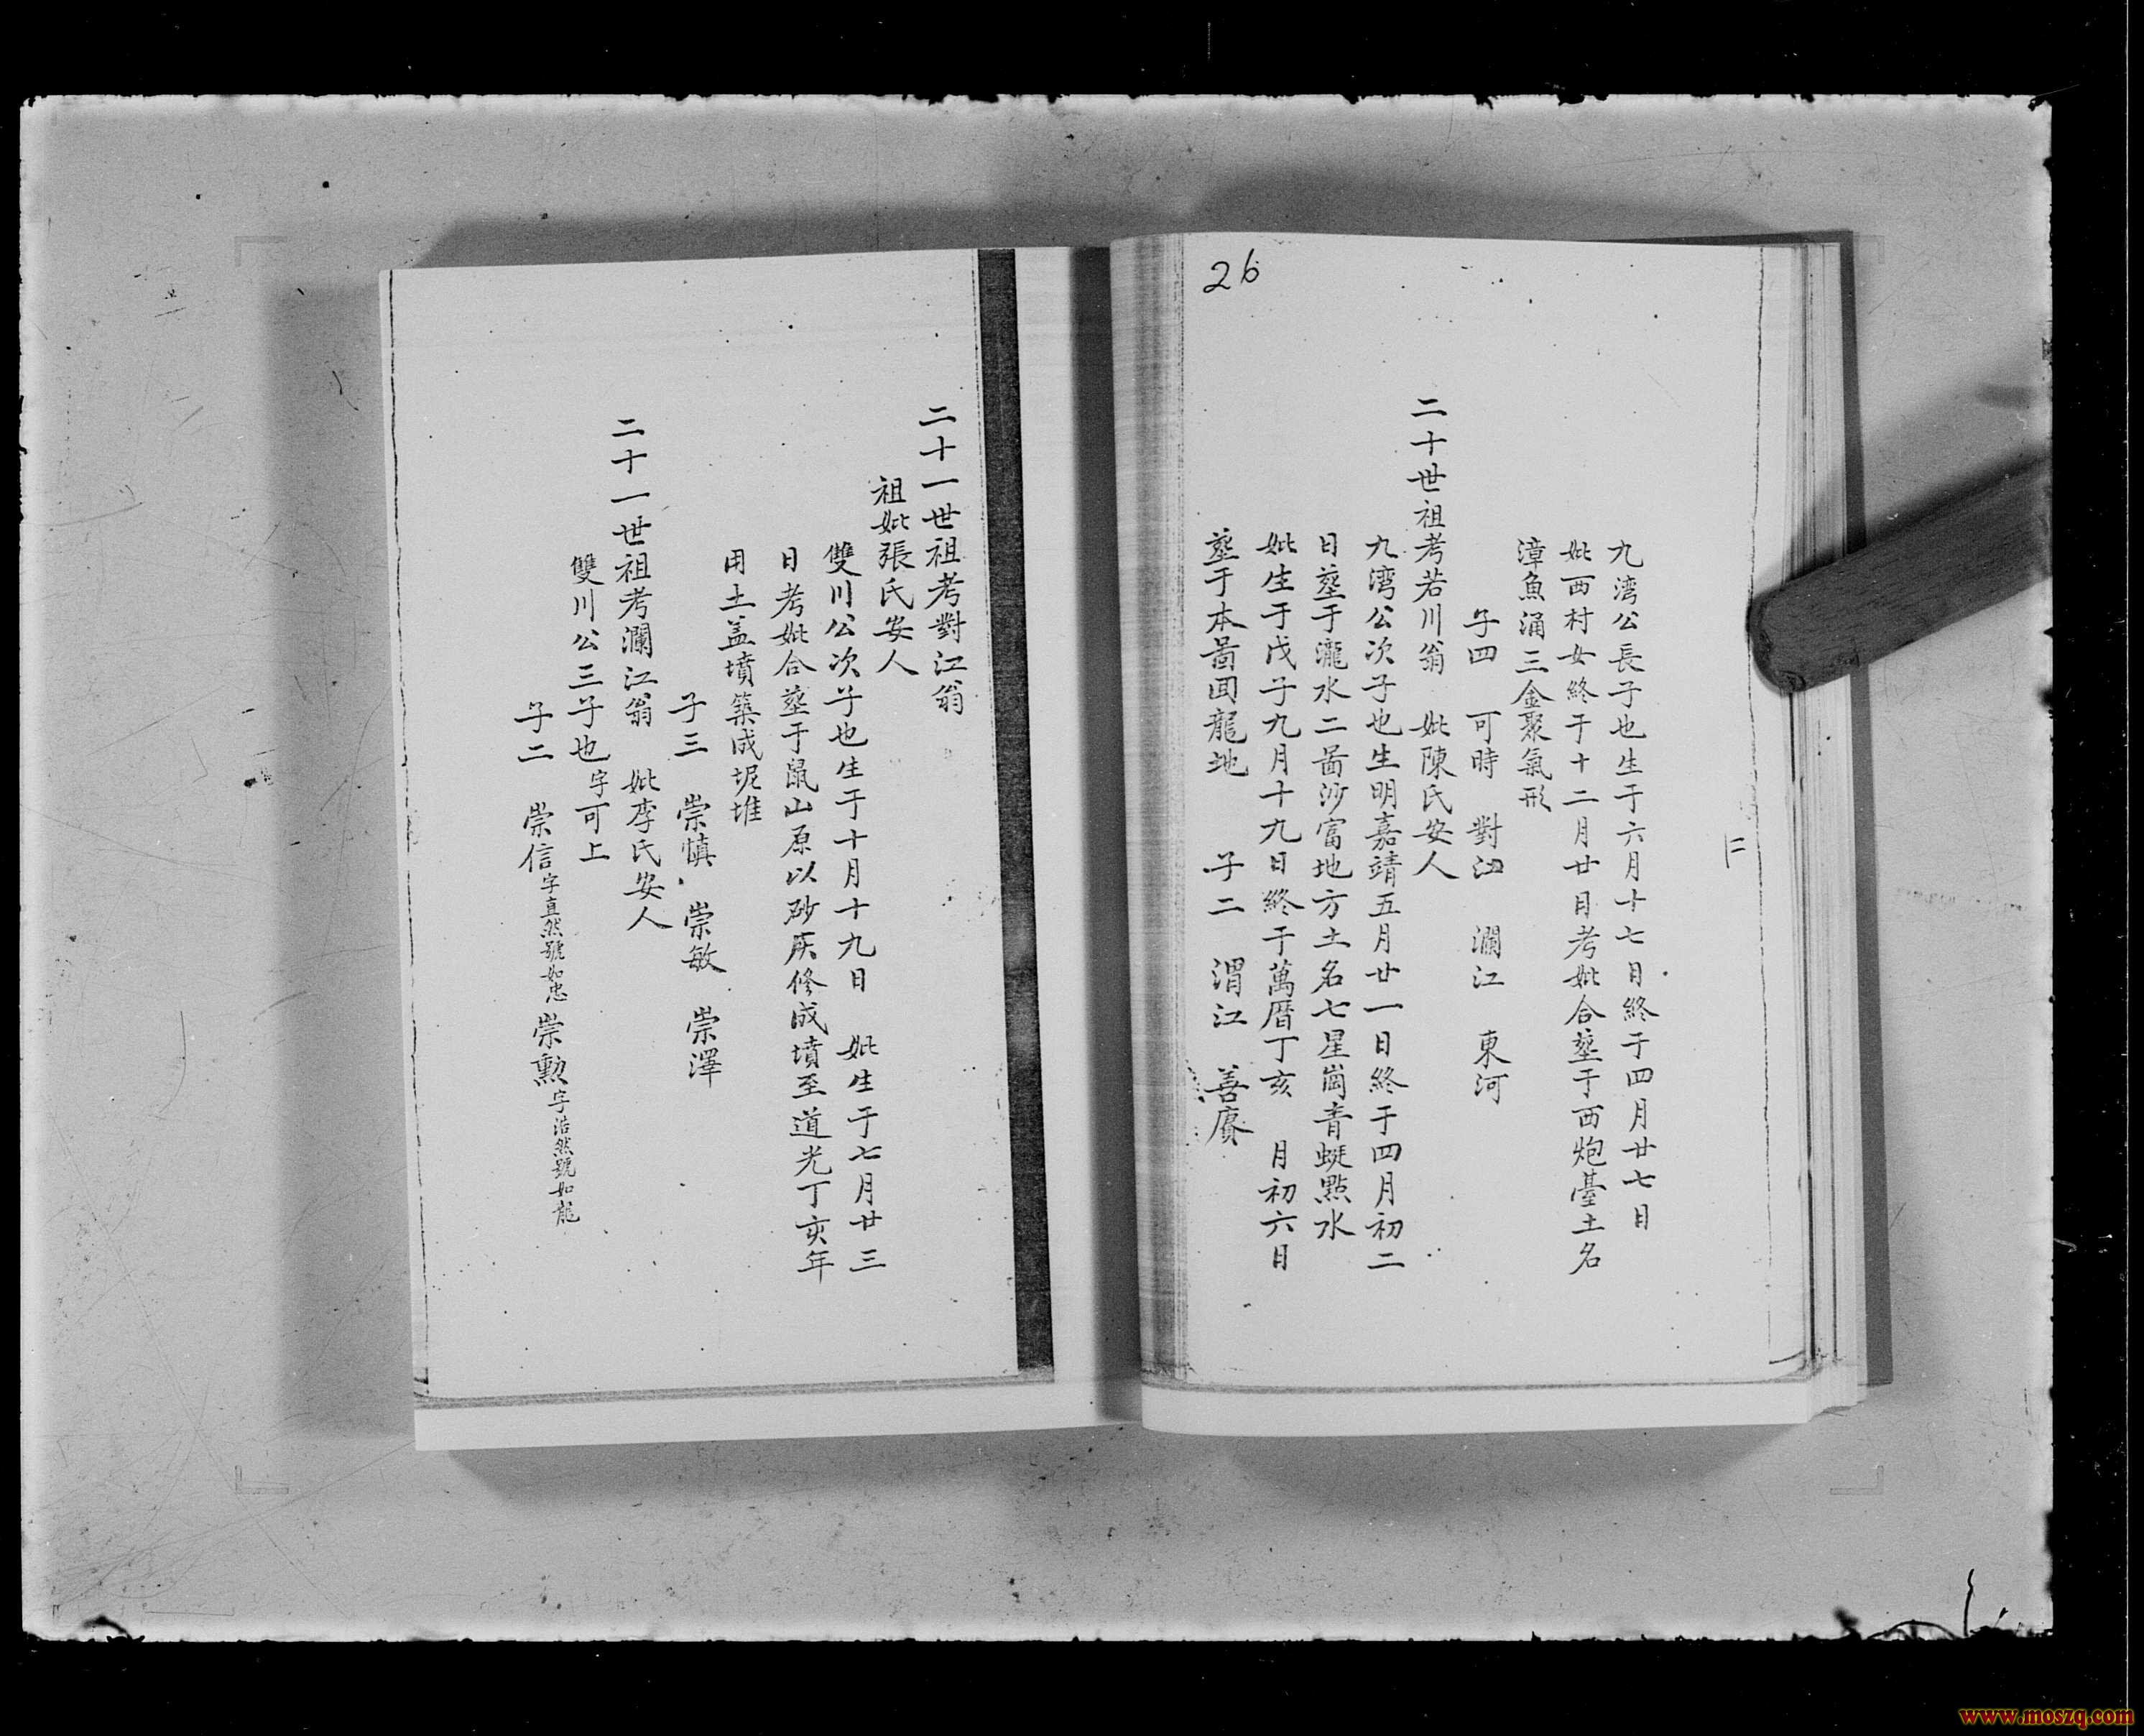 26
九湾公長子也生于六月十七日終于四月廿七日
妣西村女終于十二月廿日考妣合塟于西炮臺土名
漳魚涌三金聚氣形
子四 可時 對江 瀾江 東河
二十世祖考若川翁 妣陳氏安人
九湾公次子也生明嘉靖五月廿一日終于四月初二
日塟于瀧水二啚沙富地方土名七星崗青蜓點水
妣生于戊子九月十九日終于萬曆丁亥 月初六日
塟于本啚囬龍地 子二 渭江 善賡
二十一世祖考對江翁
祖妣張氏安人
雙川公次子也生于十月十九日 妣生于七月廿三
日考妣合塟于鼠山原以砂灰修成墳至道光丁亥年
用土盖墳築成坭堆
子三 崇慎 崇敏 崇澤
二十一世祖考瀾江翁 妣李氏安人
雙川公三子也字可上
子二 崇信字直然號如忠 崇勲字浩然號如龍
www.moszq.com